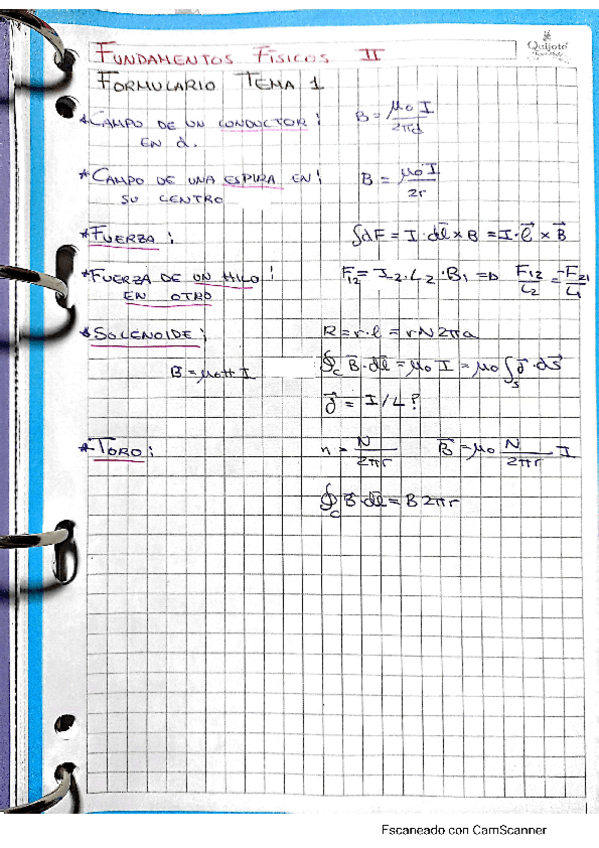 Quijote
FUNDAMENTOS FÍSICOS II
FORMULARIO TEMA 1
*CAMPO DE UN CONDUCTOR: B = μ₀ I / 2πd
EN d.
*CAMPO DE UNA ESPIRA EN: B = μ₀ I / 2r
SU CENTRO
*FUERZA: ∫dF = I · dl⃗ × B = I · l⃗ × B⃗
*FUERZA DE UN HILO: F₁₂ = I₂ · L₂ · B₁ => F₁₂/L₂ = -F₂₁/L₁
EN OTRO
*SOLENOIDE: R = r · l = r N 2πa
B⃗ = μ₀ H I ∮c B⃗ · dl⃗ = μ₀ I = μ₀ ∫s J⃗ · ds⃗
J⃗ = I/L?
*TORO: n = N / 2πr B⃗ = μ₀ N / 2πr I
∮c B⃗ · dl⃗ = B 2πr
Escaneado con CamScanner